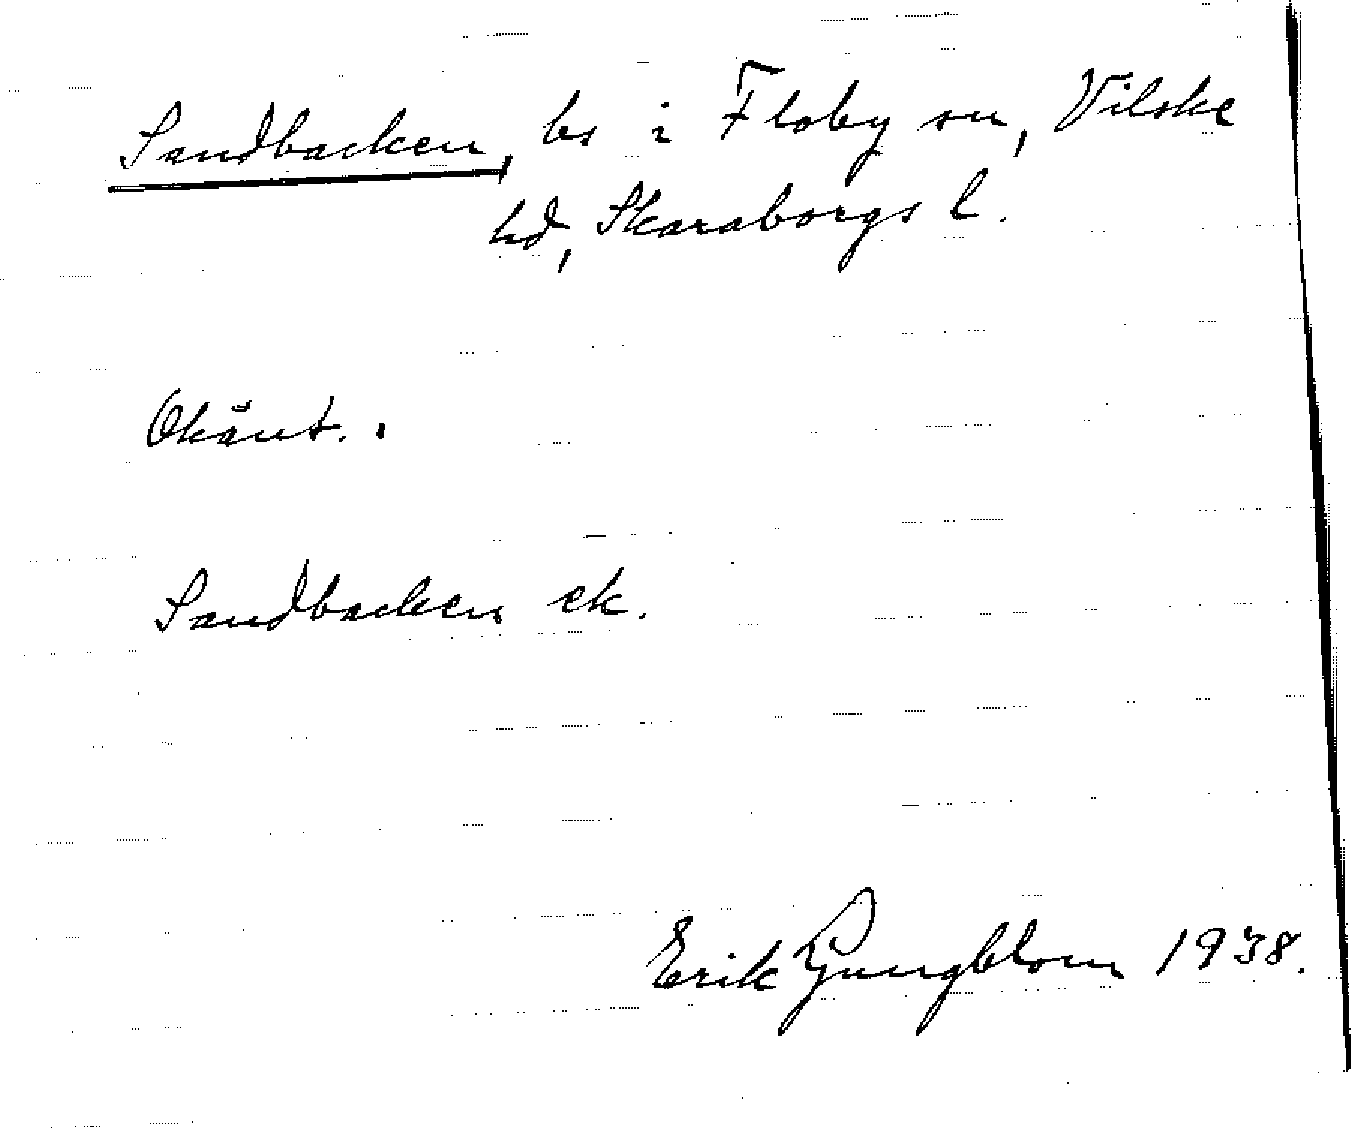 Sandbacken, bs i Floby sn, Vilske
hd, Skaraborgs l.
Okänt.
Sandbacken ek.
Erik Ljungblom 1938.